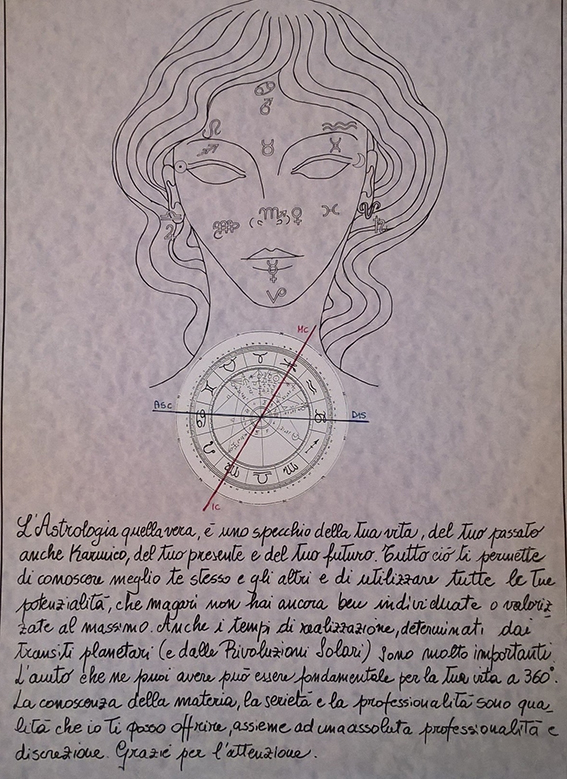 MC
ASC
DIS
IC
L'Astrologia quella vera, è uno specchio della tua vita, del tuo passato
anche Karmico, del tuo presente e del tuo futuro. Tutto ciò ti permette
di conoscere meglio te stesso e gli altri e di utilizzare tutte le tue
potenzialità, che magari non hai ancora ben individuate o valoriz=
zate al massimo. Anche i tempi di realizzazione, determinati dai
transiti planetari (e dalle Rivoluzioni Solari) sono molto importanti.
L'aiuto che ne puoi avere può essere fondamentale per la tua vita a 360°.
La conoscenza della materia, la serietà e la professionalità sono qua=
lità che io ti posso offrire, assieme ad una assoluta professionalità e
discrezione. Grazie per l'attenzione.